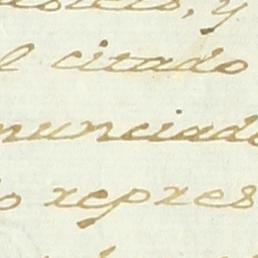 y
l citado
nunciado
o repres